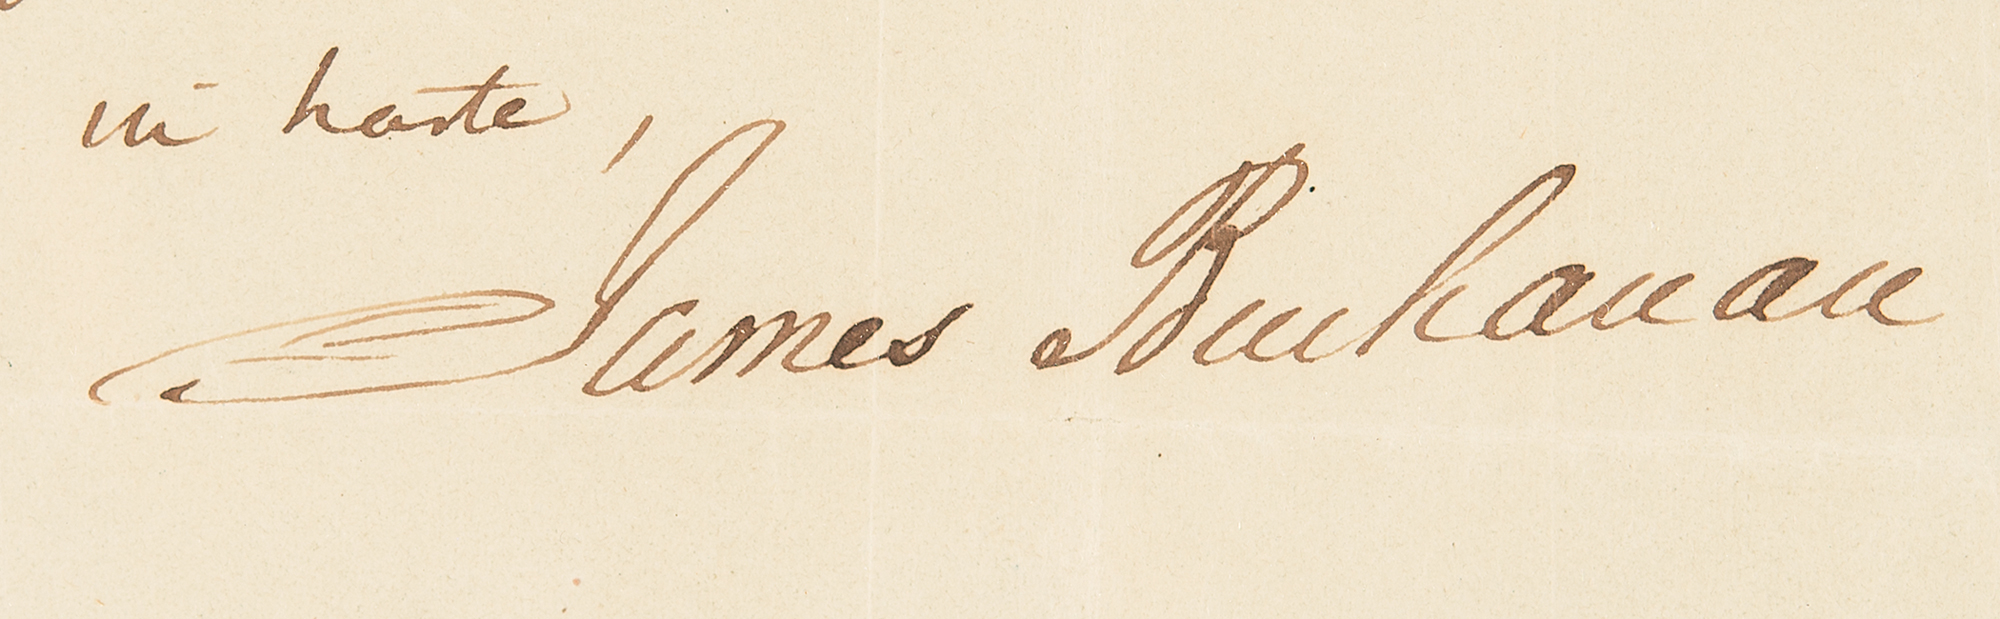 in haste,
James Buchanan